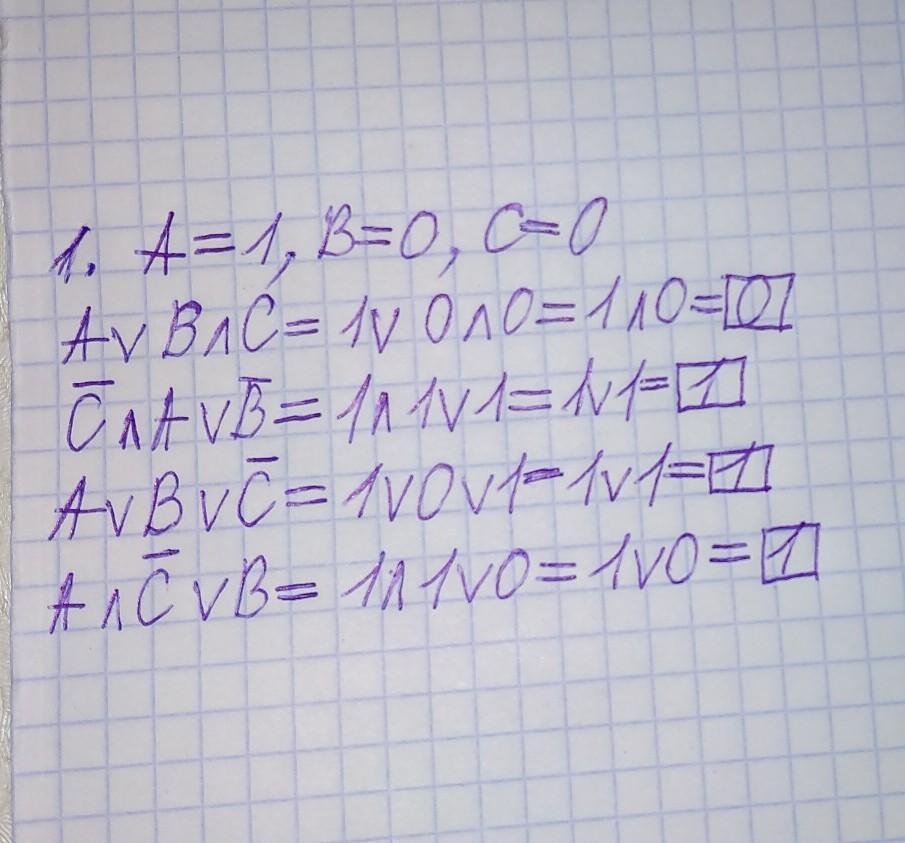 1. A=1, B=0, C=0
A∨B∧C=1∨0∧0=1∧0=0
C̅∧A∨B̅=1∧1∨1=1∨1=1
A∨B∨C̅=1∨0∨1=1∨1=1
A∧C̅∨B=1∧1∨0=1∨0=1